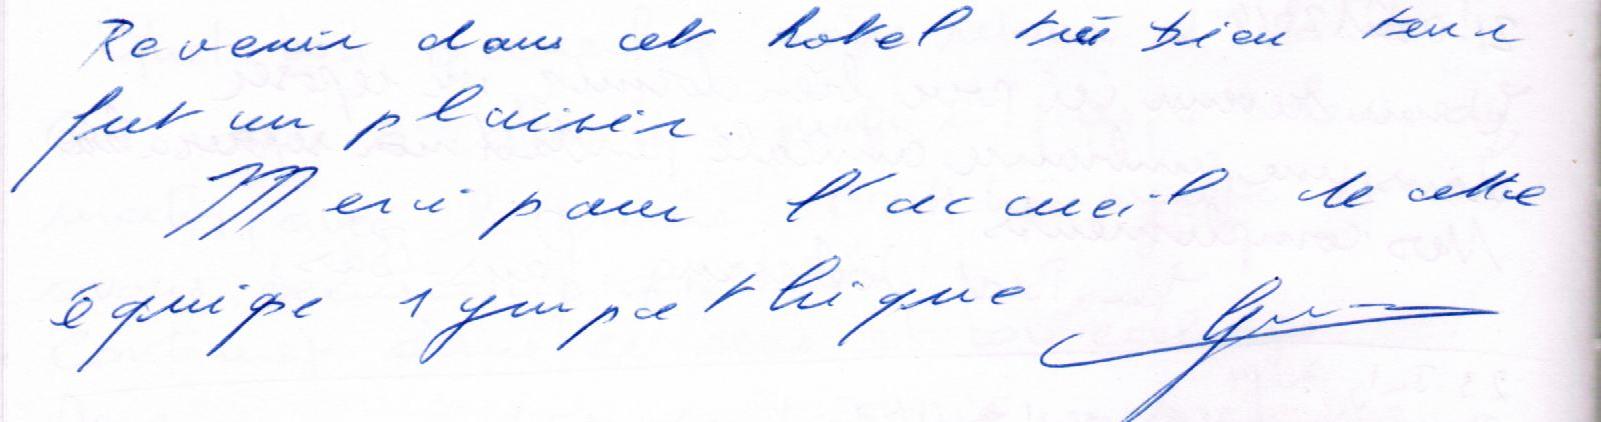 Revenir dans cet hotel très bien tenu
fut un plaisir.
Merci pour l'accueil de cette
équipe sympathique